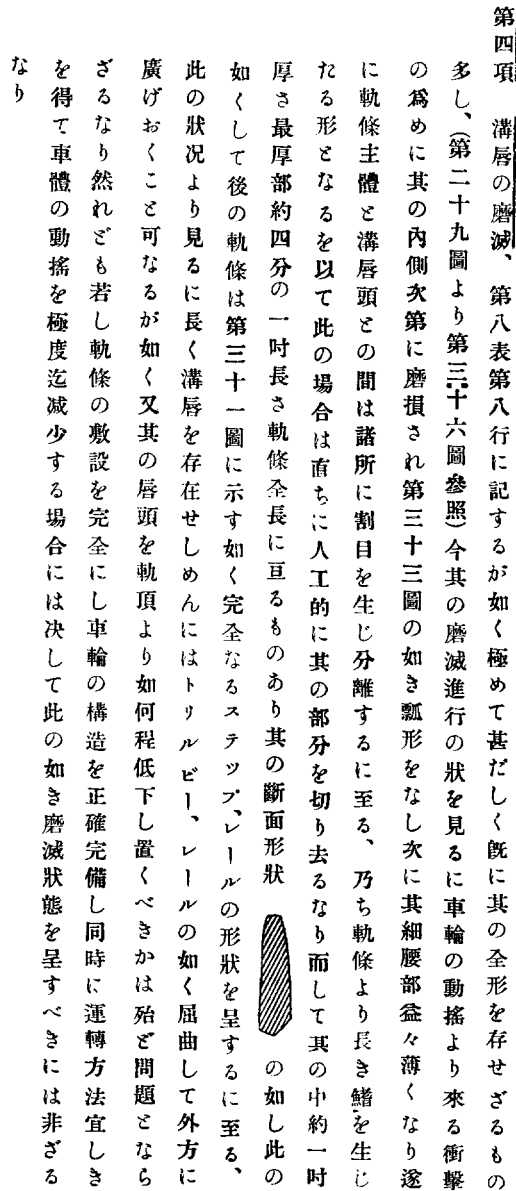 第四項　溝唇の磨滅、　第八表第八行に記するが如く極めて甚だしく既に其の全形を存せざるもの
多し、(第二十九圖より第三十六圖參照)今其の磨滅進行の狀を見るに車輪の動搖より來る衝擊
の爲めに其の內側次第に磨損され第三十三圖の如き瓢形をなし次に其細腰部益々薄くなり遂
に軌條主體と溝唇頭との間は諸所に割目を生じ分離するに至る、乃ち軌條より長き鰭を生じ
たる形となるを以て此の場合は直ちに人工的に其の部分を切り去るなり而して其の中約一吋
厚さ最厚部約四分の一吋長さ軌條全長に亘るものあり其の斷面形狀　の如し此の
如くして後の軌條は第三十一圖に示す如く完全なるステップ、レールの形狀を呈するに至る、
此の狀況より見るに長く溝唇を存在せしめんにはトリルビー、レールの如く屈曲して外方に
廣げおくこと可なるが如く又其の唇頭を軌頂より如何程低下し置くべきかは殆ど問題となら
ざるなり然れども若し軌條の敷設を完全にし車輪の構造を正確完備し同時に運轉方法宜しき
を得て車體の動搖を極度迄減少する場合には决して此の如き磨滅狀態を呈すべきには非ざる
なり